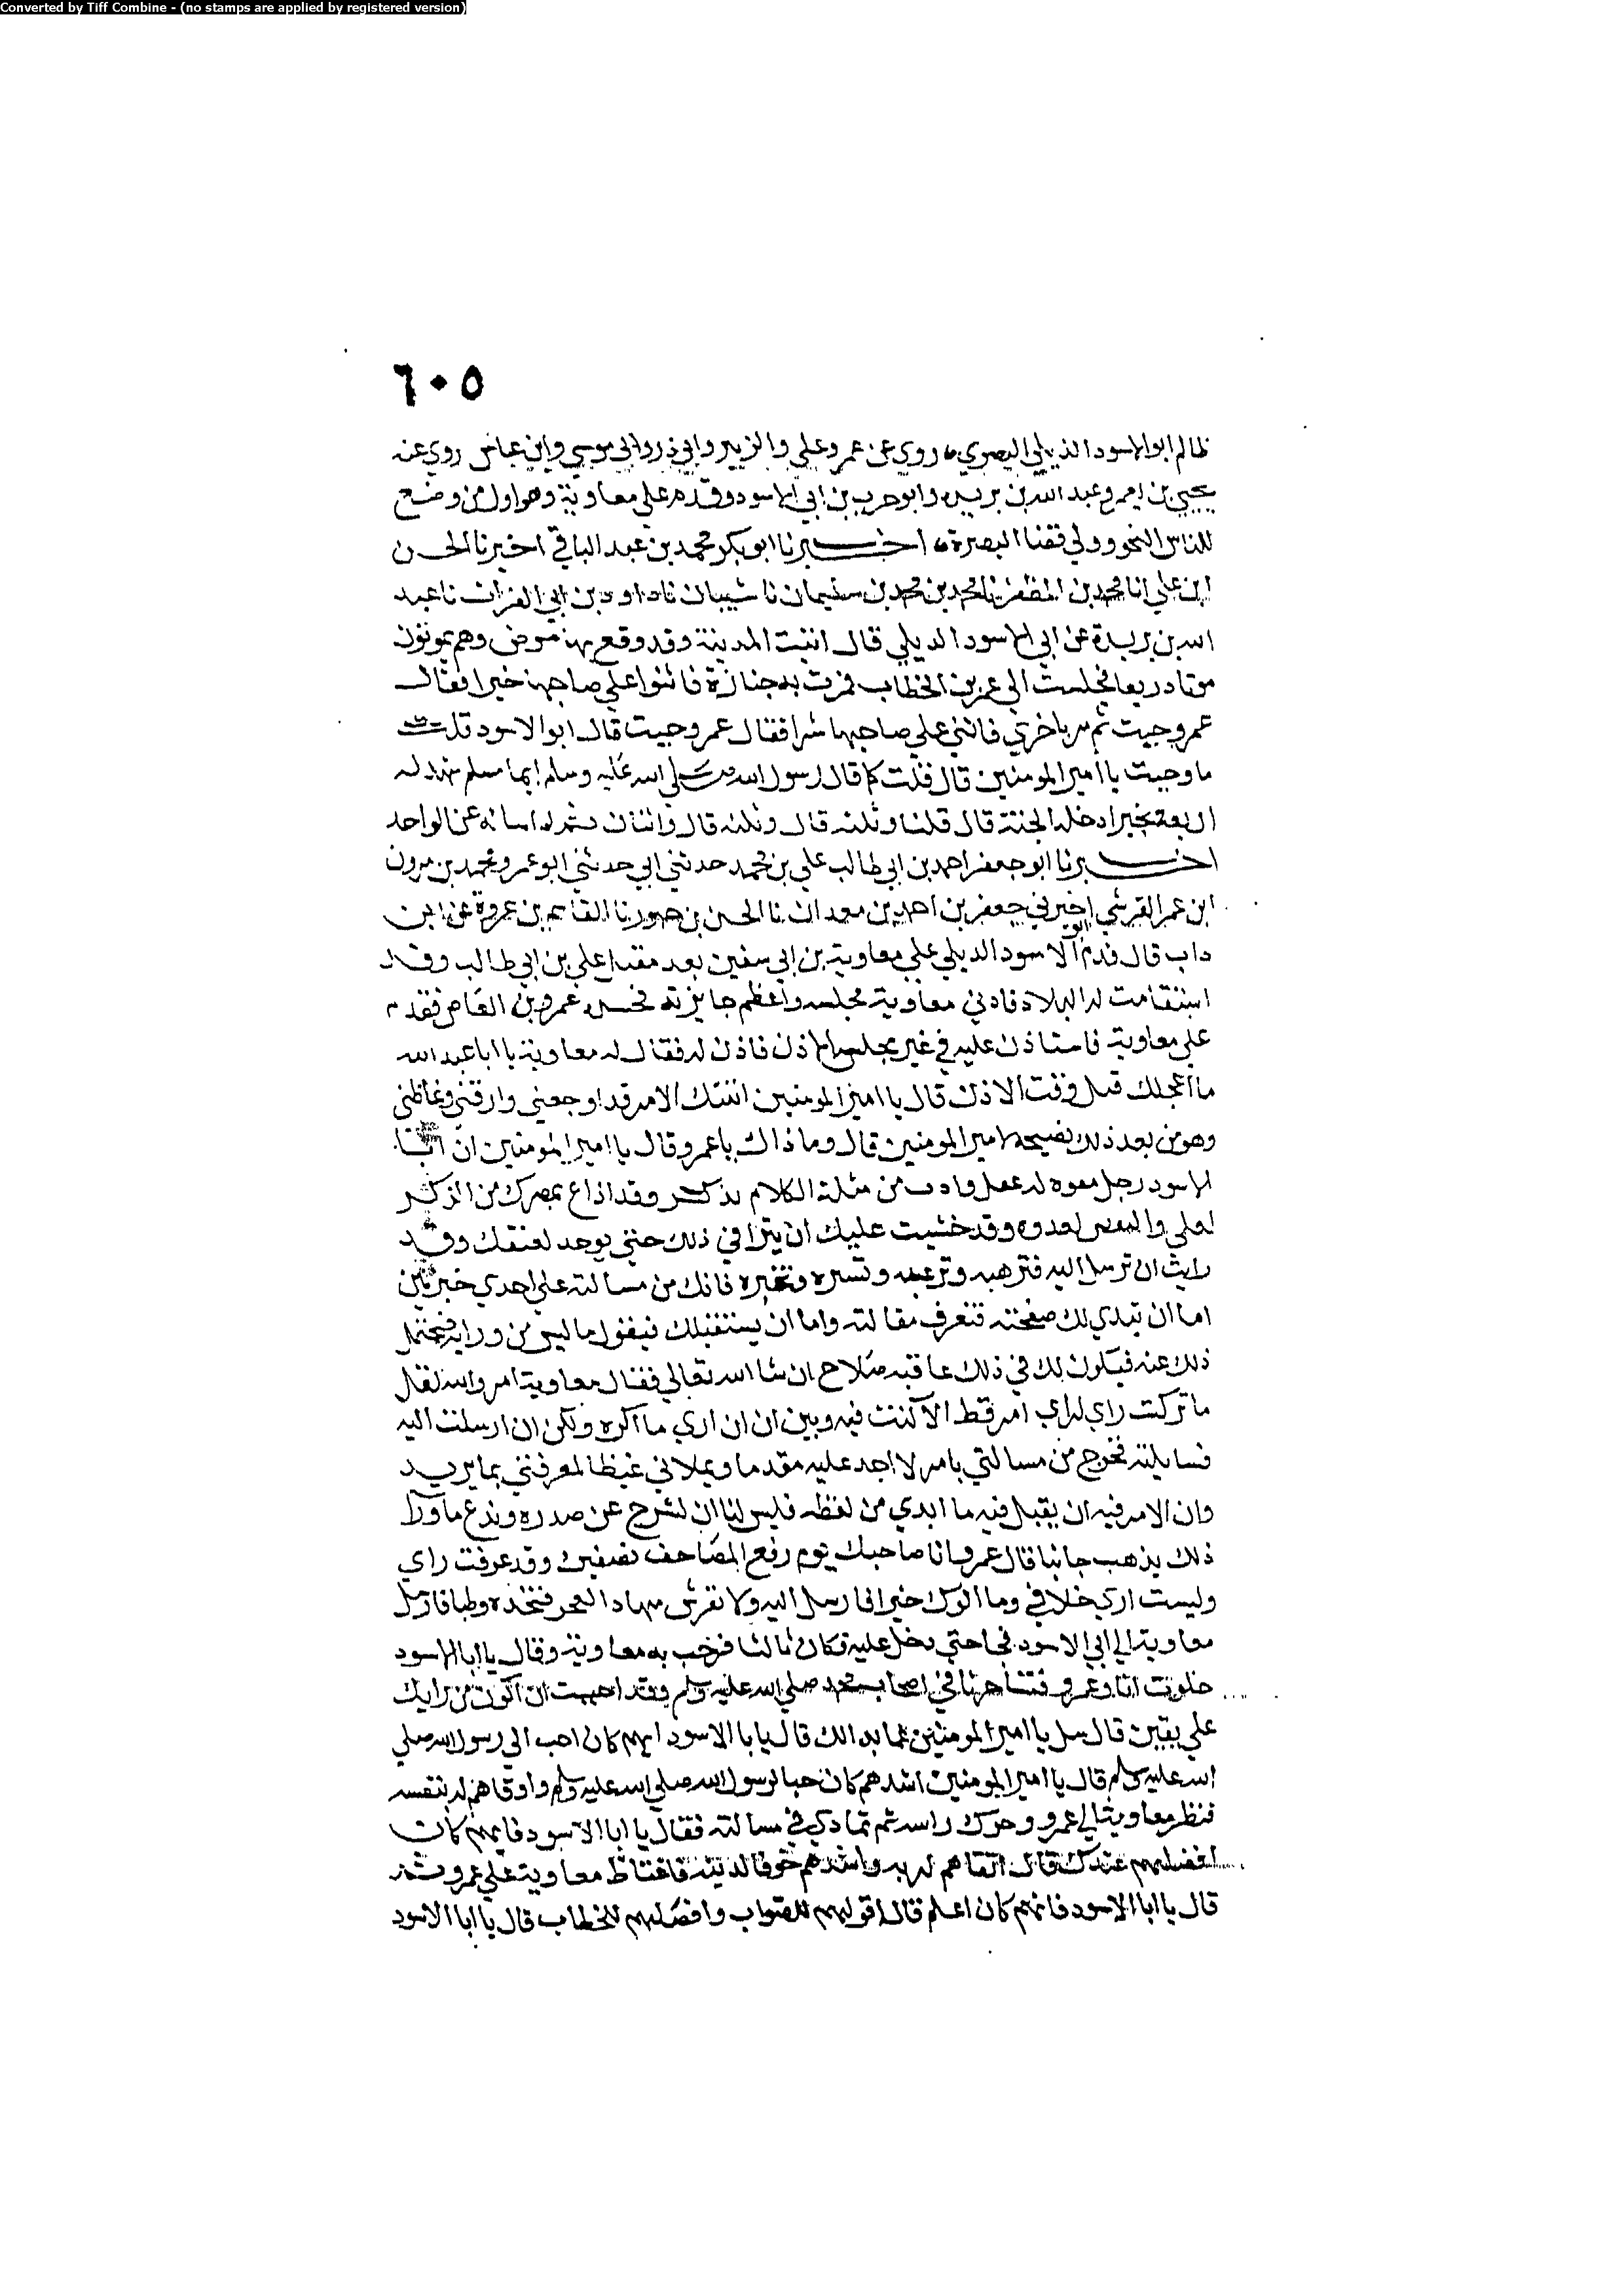 Converted by Tiff Combine - (no stamps are applied by registered version)
٦٠٥
ظالم ابو الاسود الديلي البصري روي عن عمر وعلي والزبير وابي ذر وابي موسي وابن عباس روي عنه
يحيي بن يعمر وعبد الله بن بريده وابو حرب بن ابي الاسود وقدم علي معاوية وهو اول من وضع
للناس النحو وولي قضا البصرة اخبرنا ابو بكر محمد بن عبد الباقي اخبرنا الحسن
ابن علي انا محمد بن المظفر نا محمد بن محمد بن سليمان نا شيبان نا داود بن ابي الفرات نا عبد
الله بن بريدة عن ابي الاسود الديلي قال اتيت المدينة وقد وقع بها مرض وهم يموتون
موتا ذريعا فجلست الي عمر بن الخطاب فمرت به جنازة فاثنوا علي صاحبها خيرا فقال
عمر وجبت ثم مر باخري فاثني علي صاحبها شرا فقال عمر وجبت قال ابو الاسود قلت
ما وجبت يا امير المومنين قال قلت كما قال رسول الله صلي الله عليه وسلم ايما مسلم شهد له
اربعة بخير ادخله الجنة قال قلنا وثلثه قال وثلثه قال واثنان ثم لم اساله عن الواحد
اخبرنا ابو جعفر احمد بن ابي طالب علي بن محمد حدثني ابي حدثني ابو عمرو محمد بن مرون
ابن عمر القرشي اخبرني جعفر بن احمد بن معدان نا الحسن بن جهور نا القاسم بن عروة عن ابن
داب قال قدم ابو الاسود الديلي علي معاوية بن ابي سفين بعد مقتل علي بن ابي طالب وقد
استقامت له البلاد فادني معاوية مجلسه واعظم جايزته فحسده عمرو بن العاص فقدم
علي معاوية فاستاذن عليه في غير مجلس الاذن فاذن له فقال له معاوية يا ابا عبد الله
ما اعجلك قبل وقت الاذن قال يا امير المومنين اتيتك لامر قد اوجعني وارقني وغاظني
وهو من بعد ذلك نصيحة لامير المومنين قال وما ذاك يا عمرو قال يا امير المومنين ان ابا
الاسود رجل مفوه له عقل وادب من مثله الكلام يذكر وقد اذاع بمصرك من الذكر
لعلي والبغض لعدوه وقد خشيت عليك ان يترا في ذلك حتي يوخد لعنقك وقد
رايت ان ترسل اليه فترهبه وترعبه وتسبره وتخبره فانك من مسالته علي احدي خبرتين
اما ان يبدي لك صفحته فتعرف مقالته واما ان يستقبلك فيقول ما ليس من ورايه فيحتمل
ذلك عنه فيكون لك في ذلك عاقبه صلاح ان شا الله تعالي فقال معاوية امر والله لقل
ما تركت راي لراي امر قط الا كنت فيه وبين ان ان اري ما اكره ولكن ان ارسلت اليه
فسايلته فخرج من مسالتي بامر لا اجد عليه مقدما ويملاني غيظا لمعرفتي بما يريد
وان الامر فيه ان يقبل فيه ما ابدي من لفظه فليس لنا ان نشرح عن صدره وندع ما ورا
ذلك يذهب جانبا قال عمرو انا صاحبك يوم رفع المصاحف بصفين وقد عرفت راي
وليست اري خلافي وما الوك خيرا فارسل اليه ولا تفرش مهاد العجز فتتخذه وطيا فارسل
معاوية الي ابي الاسود فجا حتي دخل عليه فكان ثالثا فرحب به معاوية وقال يا ابا الاسود
خلوت انا وعمرو فتشاجرنا في اصحاب محمد صلي الله عليه وسلم وقد احببت ان اكون من رايك
علي يقين قال سل يا امير المومنين عما بدالك قال يا با الاسود ايهم كان احب الي رسول الله صلي
الله عليه وسلم قال يا امير المومنين اشدهم كان حبا لرسول الله صلي الله عليه وسلم واوقاهم له بنفسه
فنظر معاوية الي عمرو وحرك راسه ثم تمادي في مسالته فقال يا ابا الاسود فايهم كان
افضلهم عندك قال اتقاهم لربه واشدهم خوفا لدينه فاغتاظ معاوية علي عمرو ثم
قال يا ابا الاسود فايهم كان اعلم قال اقولهم للصواب وافصلهم للخطاب قال يا ابا الاسود